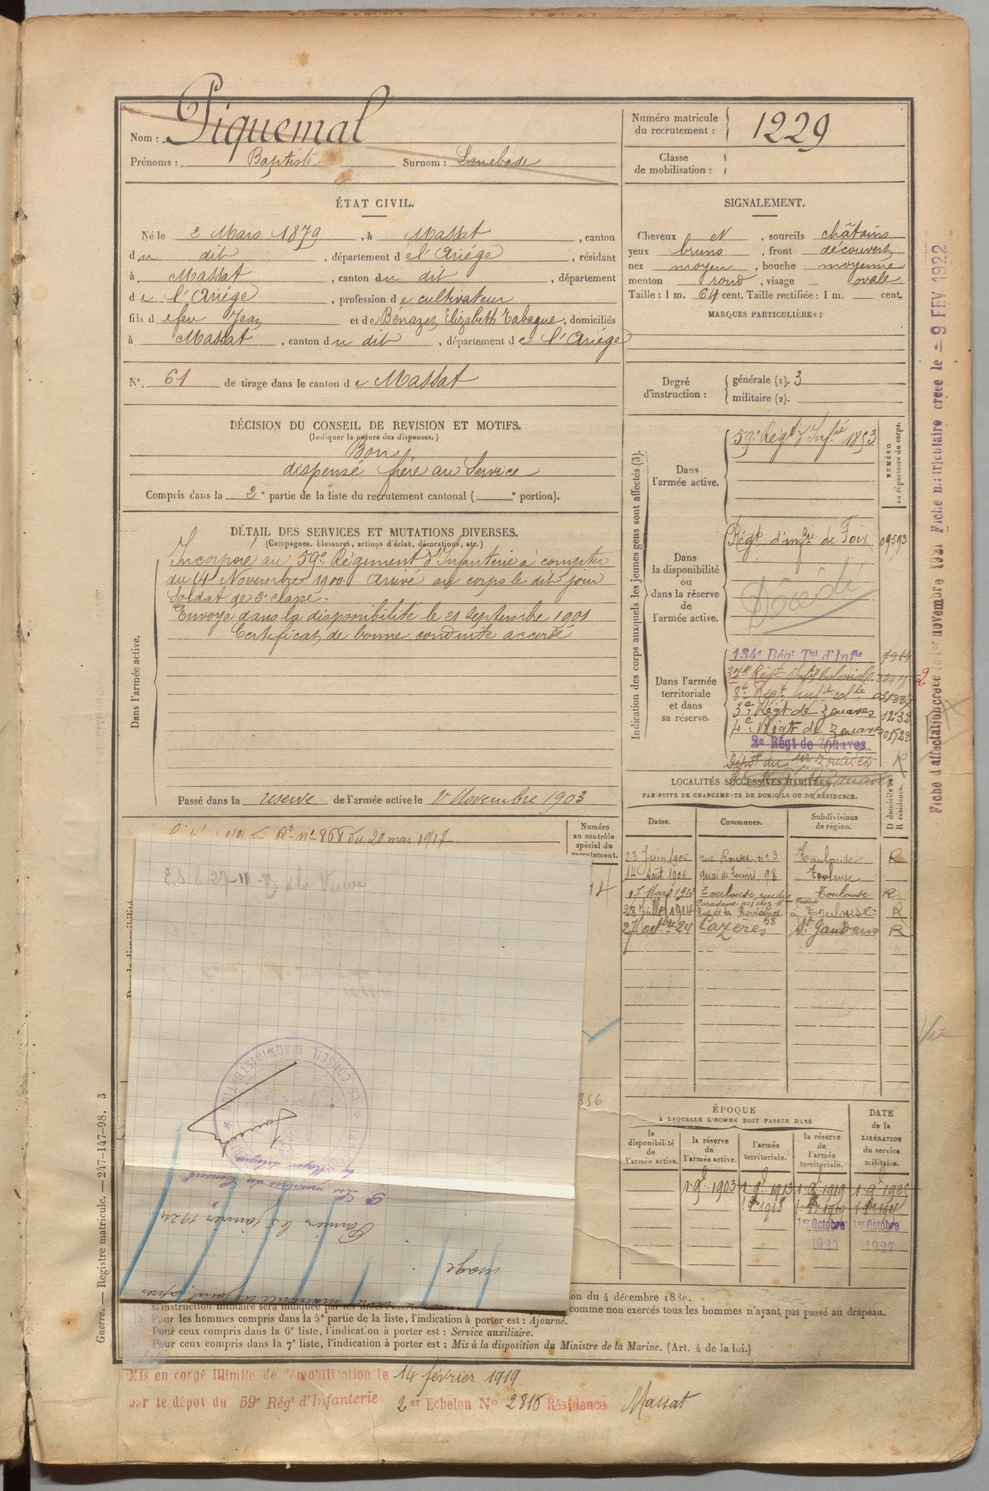 Nom : Piquemal
Prénoms : Baptiste Surnom : Lanebade
Numéro matricule du recrutement : 1229
Classe de mobilisation :
ÉTAT CIVIL.
Né le 2 Mars 1879, à Massat, canton
du dit, département de l'Ariège, résidant
à Massat, canton du dit, département
de l'Ariège, profession de cultivateur
fils de feu Jean et de Bénazet Elizabeth Tabague, domiciliés
à Massat, canton du dit, département de l'Ariège
N° 61 de tirage dans le canton de Massat
SIGNALEMENT.
Cheveux et, sourcils châtains
yeux bruns, front découvert
nez moyen, bouche moyenne
menton rond, visage ovale
Taille : 1 m. 64 cent. Taille rectifiée : 1 m. cent.
MARQUES PARTICULIÈRES :
Degré d'instruction :
générale (1). 3
militaire (2).
DÉCISION DU CONSEIL DE REVISION ET MOTIFS.
(Indiquer la nature des dispenses.)
Bon
dispensé frère au Service
Compris dans la 2e partie de la liste du recrutement cantonal ( e portion).
DÉTAIL DES SERVICES ET MUTATIONS DIVERSES.
(Campagnes, blessures, actions d'éclat, décorations, etc.)
Dans l'armée active.
Incorporé au 59e Régiment d'Infanterie à compter
du 14 Novembre 1900. Arrivé au corps le dit jour
Soldat de 2e classe.
Envoyé dans la disponibilité le 21 Septembre 1901
Certificat de bonne conduite accordé
Passé dans la réserve de l'armée active le 1er Novembre 1903
Indication des corps auxquels les jeunes gens sont affectés (3).
NUMÉRO au répertoire du corps.
Dans l'armée active.
59e Régt d'Infie 1853
Dans la disponibilité ou dans la réserve de l'armée active.
Régt d'infrie de Foix 09593
Décédé
Dans l'armée territoriale et dans sa réserve.
134e Régt Tal d'Infie
3e Régt de Zouaves 1232
4e Régt de Zouaves 01528
2e Régt de Zouaves
Dépôt du 1er Zouaves
LOCALITÉS SUCCESSIVES HABITÉES
PAR SUITE DE CHANGEMENTS DE DOMICILE OU DE RÉSIDENCE.
Dates. Communes. Subdivisions de région. D domicile ou R résidence.
23 Juin 1906 rue Rouxe no 3 Toulouse R
14 Août 1906 quai de Tounis, 98 Toulouse
17 Mars 1912 Toulouse, rue de Toulouse R
28 Juillet 1914 Rue de la Providence 58 à Toulouse R
27 octbre 24 Cazères St Gaudens R
Numéro au contrôle spécial du recrutement.
no 868 du 20 mai 1917
CONSEIL D'ADMINISTRATION
Le Major délégué
Pr Les membres du Conseil
Pamiers le 5 janvier 1924
ÉPOQUE
À LAQUELLE L'HOMME DOIT PASSER DANS
la disponibilité de l'armée active.
la réserve de l'armée active.
l'armée territoriale.
la réserve de l'armée territoriale.
DATE de la LIBÉRATION du service militaire.
1 9bre 1903 1 9bre 1913 1 9bre 1919 1 9bre 1925
1er Octobre 1er Octobre
1920 1927
on du 4 décembre 1889.
L'instruction militaire sera indiquée par les
comme non exercés tous les hommes n'ayant pas passé au drapeau.
Pour les hommes compris dans la 5e partie de la liste, l'indication à porter est : Ajourné.
Pour ceux compris dans la 6e liste, l'indication à porter est : Service auxiliaire.
Pour ceux compris dans la 7e liste, l'indication à porter est : Mis à la disposition du Ministre de la Marine. (Art. 4 de la loi.)
Mis en congé illimité de démobilisation le 14 février 1919
par le dépôt du 59e Régt d'Infanterie 2er Echelon No 2816 Résidence Massat
Guerre. — Registre matricule. — 247-147-98. 3
Fiche d'affectation créée le novembre 1921 Fiche matriculaire créée le - 9 FEV 1922